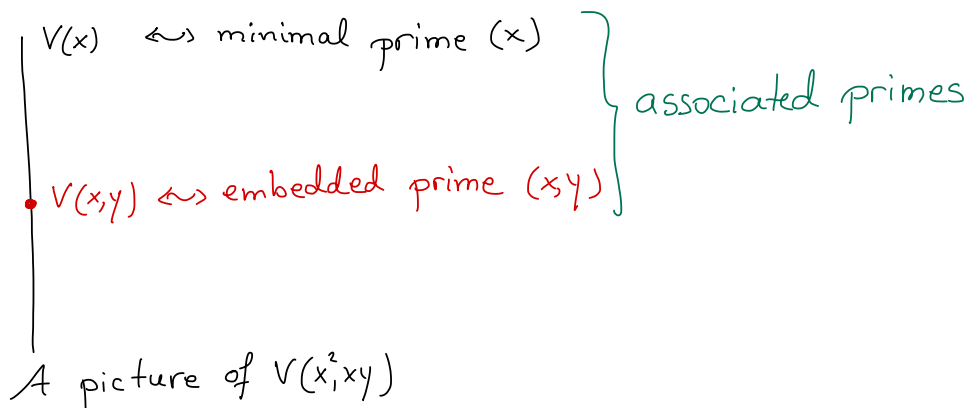 V(x) ↭ minimal prime (x)
associated primes
V(x,y) ↭ embedded prime (x,y)
A picture of V(x²,xy)